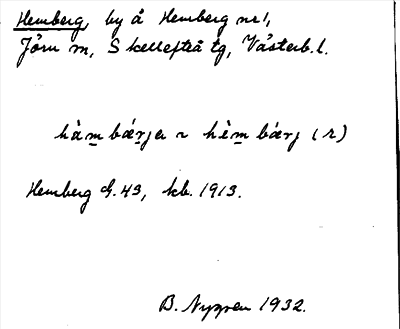 Hemberg, by å Hemberg nr 1,
Jörn sn, Skellefteå tg, Västerb. l.
hàm̲ bǽrja ~ hèm̲ bærj (r)
Hemberg G. 43, kb. 1913.
B. Nygren 1932.